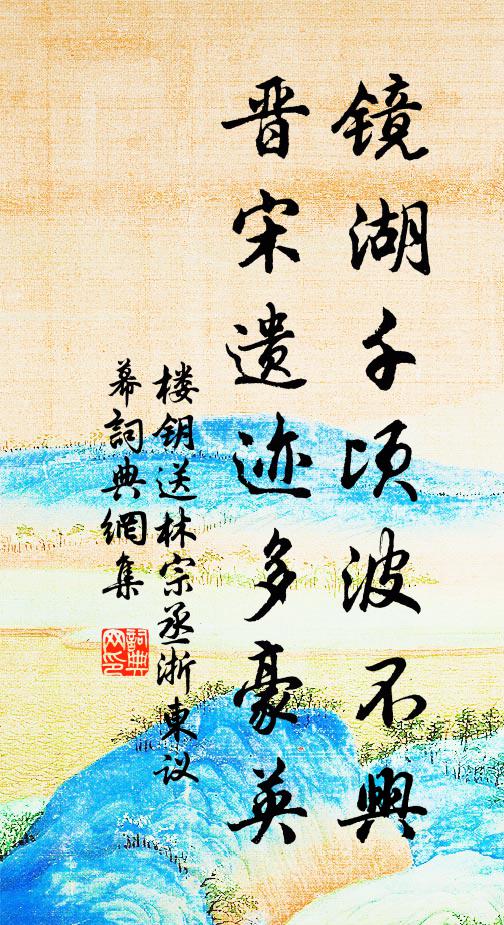 镜湖千顷波不兴
晋宋遗迹多豪英
楼钥送林宗丞浙東议
幕詞典網集
詞典网印